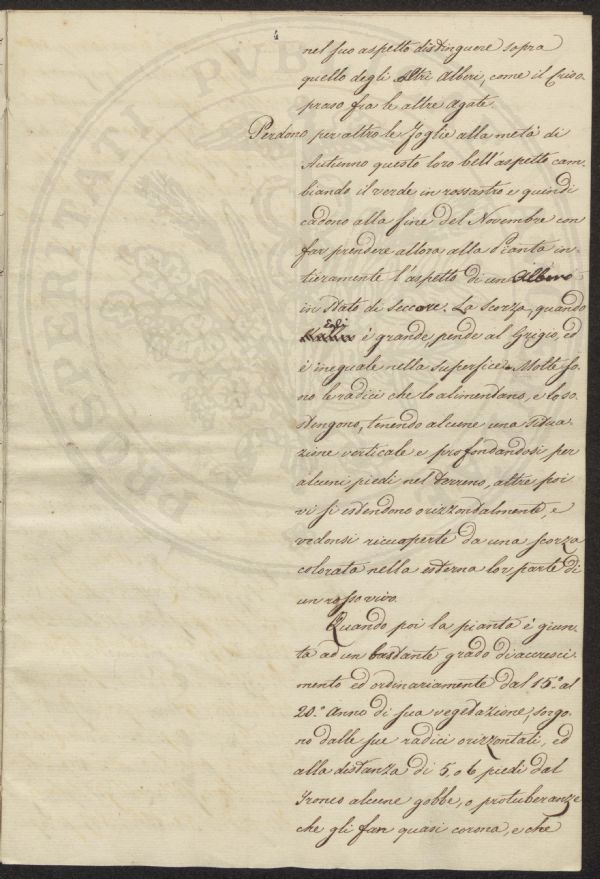 4
nel suo aspetto distinguere sopra
quello degli Altri Alberi, come il Criso
praso fra le altre agate.
Perdono per altro le Foglie alla metà di
Autunno questo loro bell'aspetto cam-
biando il verde in rossastro e quindi
cadono alla fine del Novembre con
far prendere allora alla Pianta in-
tieramente l'aspetto di un Albero
in stato di seccore. La scorza, quando
Egli
è grande, pende al Grigio, ed
è ineguale nella superfice. Molte so-
no le radici che lo alimentano, e lo so-
stengono, tenendo alcune una situa-
zione verticale e profondandosi per
alcuni piedi nel terreno, altre poi
vi si estendono orizzondalmente, e
vedonsi ricuoperte da una scorza
colorata nella esterna lor parte di
un rosso vivo.
Quando poi la pianta è giun-
ta ad un bastante grado di accresci-
mento ed ordinariamente dal 15.° al
20.° Anno di sua vegetazione, sorgo-
no dalle sue radici orizzontali, ed
alla distanza di 5. o 6 piedi dal
Tronco alcune gobbe, o protuberanze
che gli fan quasi corona, e che
PROSPERITATI PVB